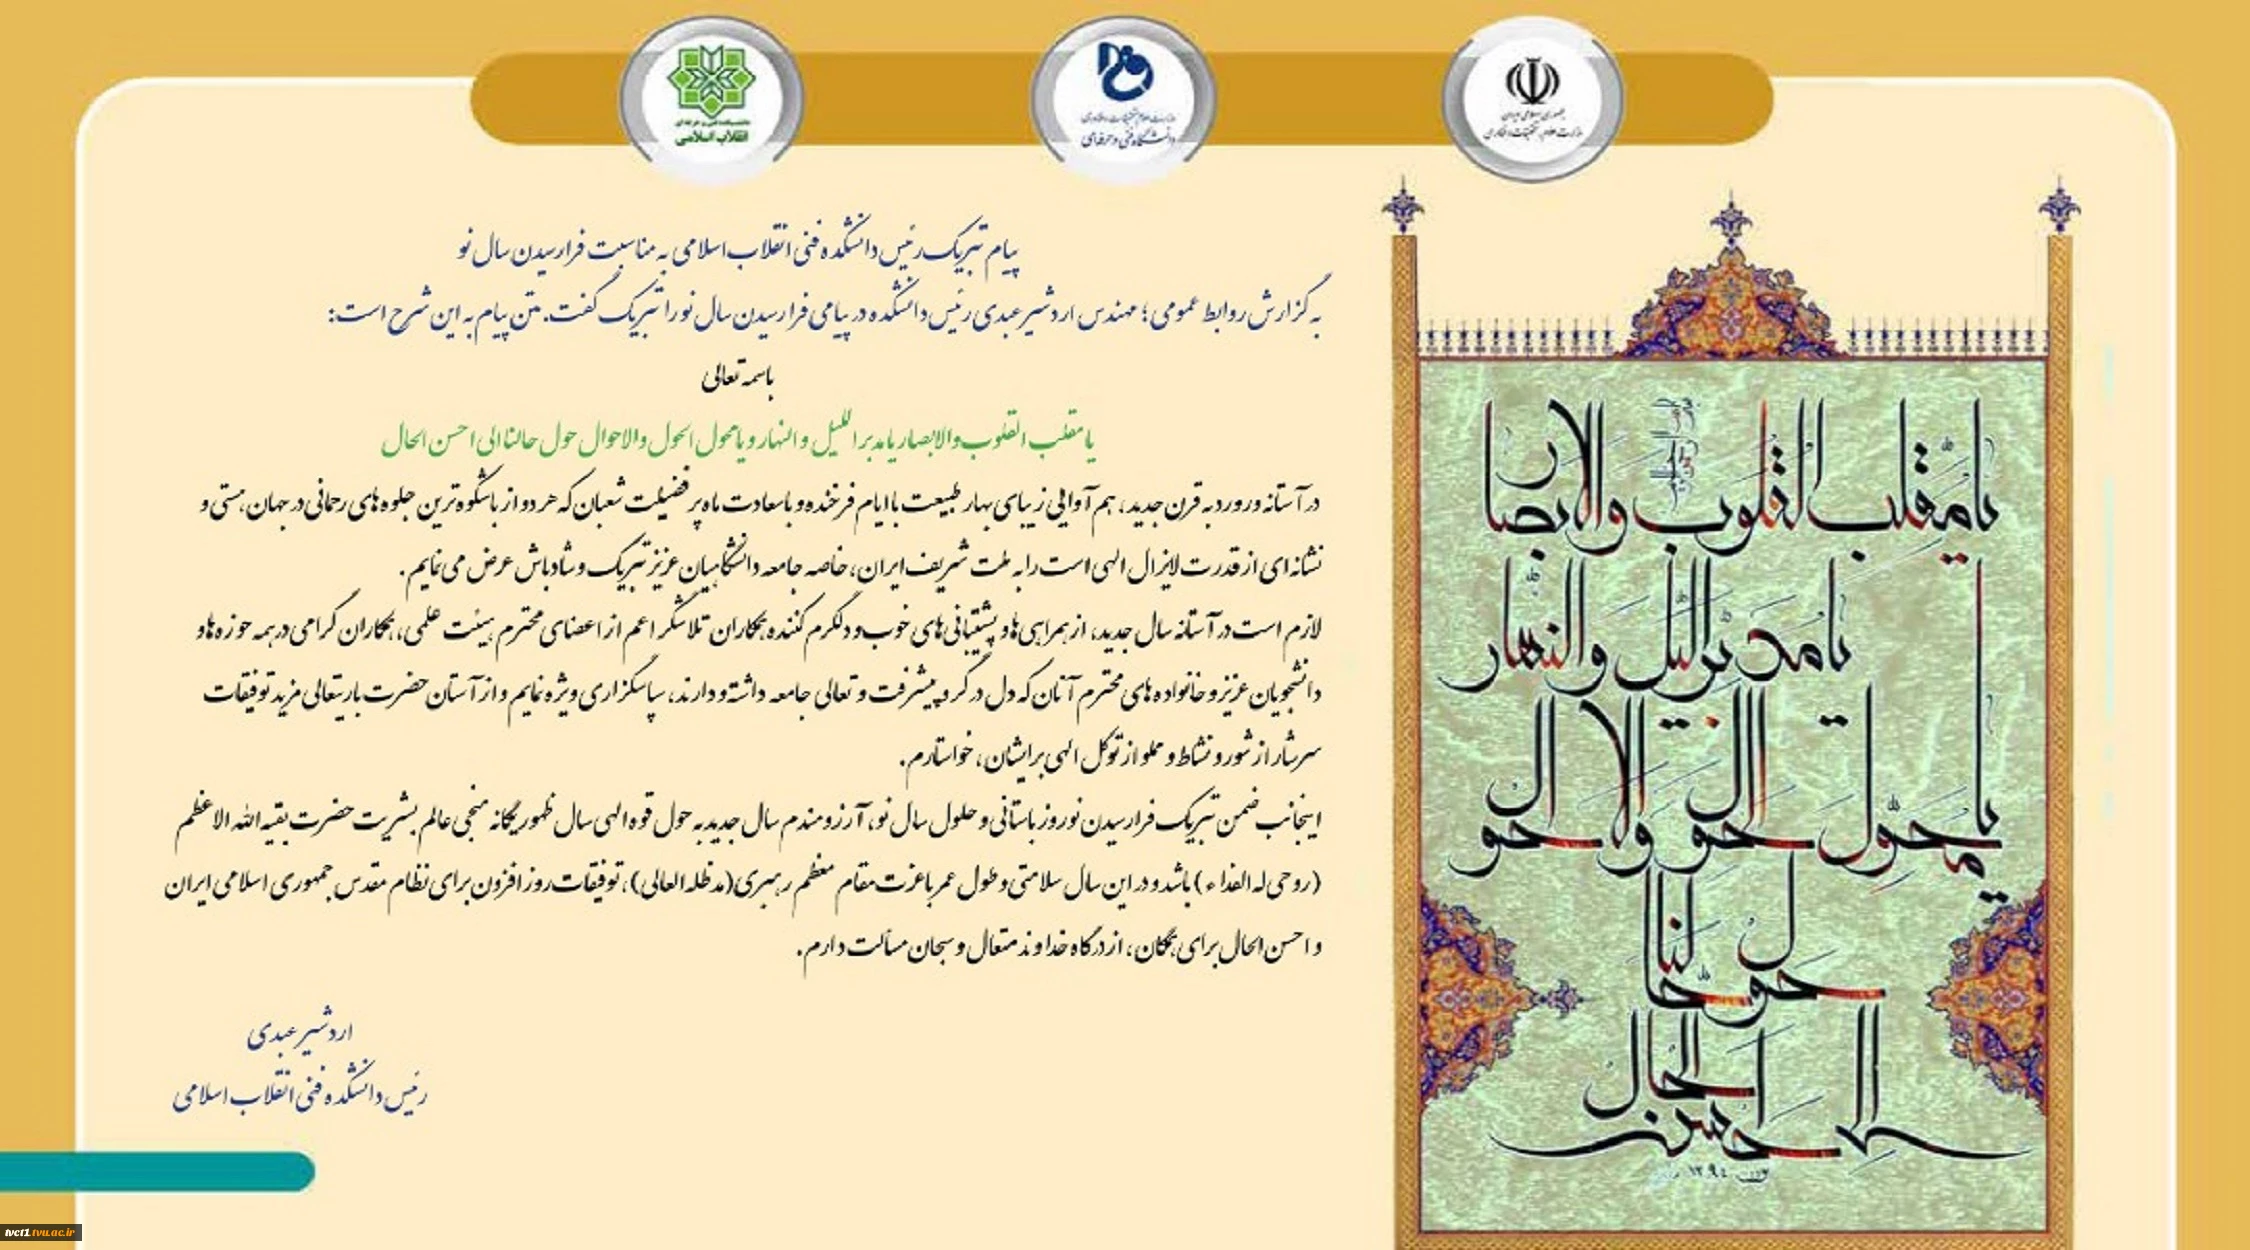 دانشکده فنی و حرفه ای
انقلاب اسلامی
وزارت علوم، تحقیقات و فناوری
دانشگاه فنی و حرفه‌ای
جمهوری اسلامی ایران
وزارت علوم، تحقیقات و فناوری
پیام تبریک رئیس دانشکده فنی انقلاب اسلامی به مناسبت فرارسیدن سال نو
به گزارش روابط عمومی؛ مهندس اردشیر عبدی رئیس دانشکده در پیامی فرارسیدن سال نو را تبریک گفت. متن پیام به این شرح است:
باسمه تعالی
یا مقلب القلوب والابصار یا مدبر اللیل و النهار و یا محول الحول والاحوال حول حالنا الی احسن الحال
در آستانه ورود به قرن جدید، هم آوایی زیبای بهار طبیعت با ایام فرخنده و باسعادت ماه پر فضیلت شعبان که هر دو از باشکوه ترین جلوه های رحمانی در جهان هستی و
نشانه ای از قدرت لایزال الهی است را به ملت شریف ایران، خاصه جامعه دانشگاهیان عزیز تبریک و شادباش عرض می نمایم.
لازم است در آستانه سال جدید، از همراهی ها و پشتیبانی های خوب و دلگرم کننده همکاران تلاشگر اعم از اعضای محترم هیئت علمی، همکاران گرامی در همه حوزه ها و
دانشجویان عزیز و خانواده های محترم آنان که دل در گرو پیشرفت و تعالی جامعه داشته و دارند، سپاسگزاری ویژه نمایم و از آستان حضرت باریتعالی مزید توفیقات
سرشار از شور و نشاط و مملو از توکل الهی برایشان، خواستارم.
اینجانب ضمن تبریک فرارسیدن نوروز باستانی و حلول سال نو، آرزومندم سال جدید به حول قوه الهی سال ظهور یگانه منجی عالم بشریت حضرت بقیه الله الاعظم
(روحی له الفداء) باشد و در این سال سلامتی و طول عمر باعزت مقام معظم رهبری(مدظله العالی)، توفیقات روزافزون برای نظام مقدس جمهوری اسلامی ایران
و احسن الحال برای همگان، از درگاه خداوند متعال و سبحان مسألت دارم.
اردشیر عبدی
رئیس دانشکده فنی انقلاب اسلامی
یا مقلب القلوب والابصار
یا مدبر اللیل والنهار
یا محول الحول والاحوال
حول حالنا
الی احسن الحال
tvct1.tvu.ac.ir